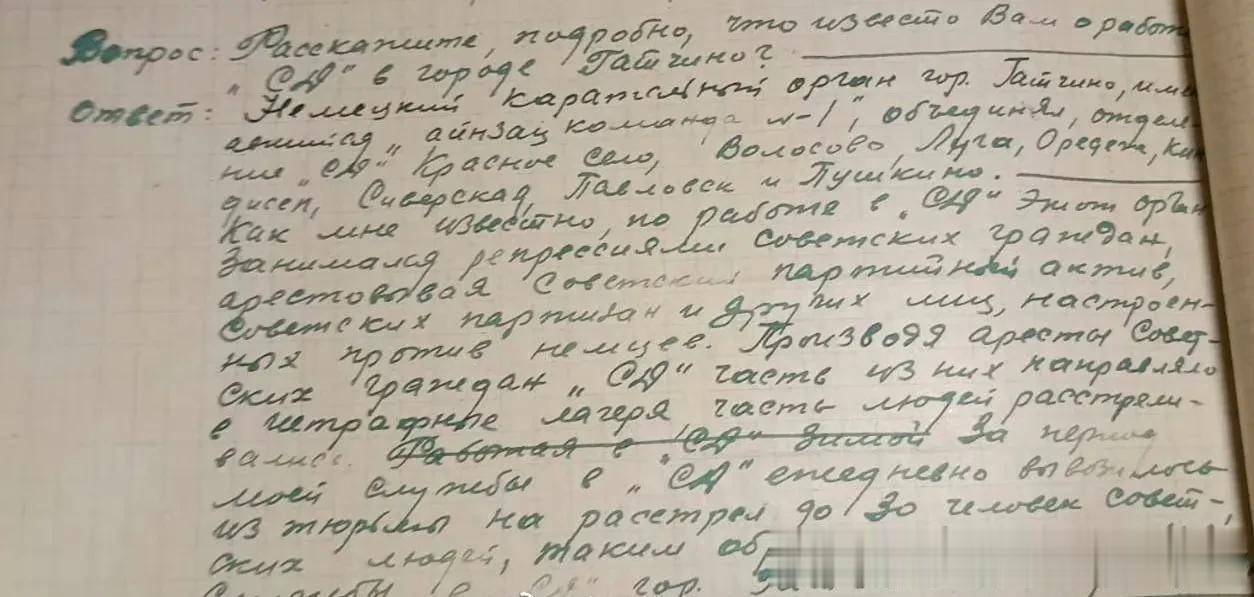 Вопрос: Расскажите, подробно, что известо Вам о работе
„СД" в городе Гатчино?
Ответ: Немецкий карательный орган гор. Гатчино, имено-
вавшийся „айнзац команда №-1", объединял, отделе-
ние „СД" Красное село, Волосово, Луга, Оредеж, Кин-
гисеп, Сиверская, Павловск и Пушкино.
Как мне известно, по работе в „СД" Этот орган
занимался репрессиями советских граждан,
арестовывая Советский партийный актив,
Советских партизан и других лиц, настроен-
ных против немцев. Производя аресты Совет-
ских граждан „СД" часть из них направляло
в штрафные лагеря часть людей расстрели-
вались. Работая в „СД" зимой За период
моей службы в „СД" ежедневно вывозилось
из тюрьмы на расстрел до 30 человек совет-
ских людей, таким об
службы в „СД" гор.